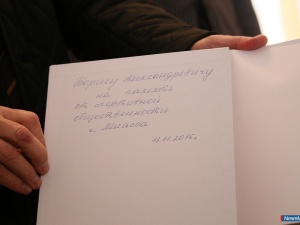 Борису Александровичу
на память
от спортивной
общественности
г. Миасса
11.11.2015г.